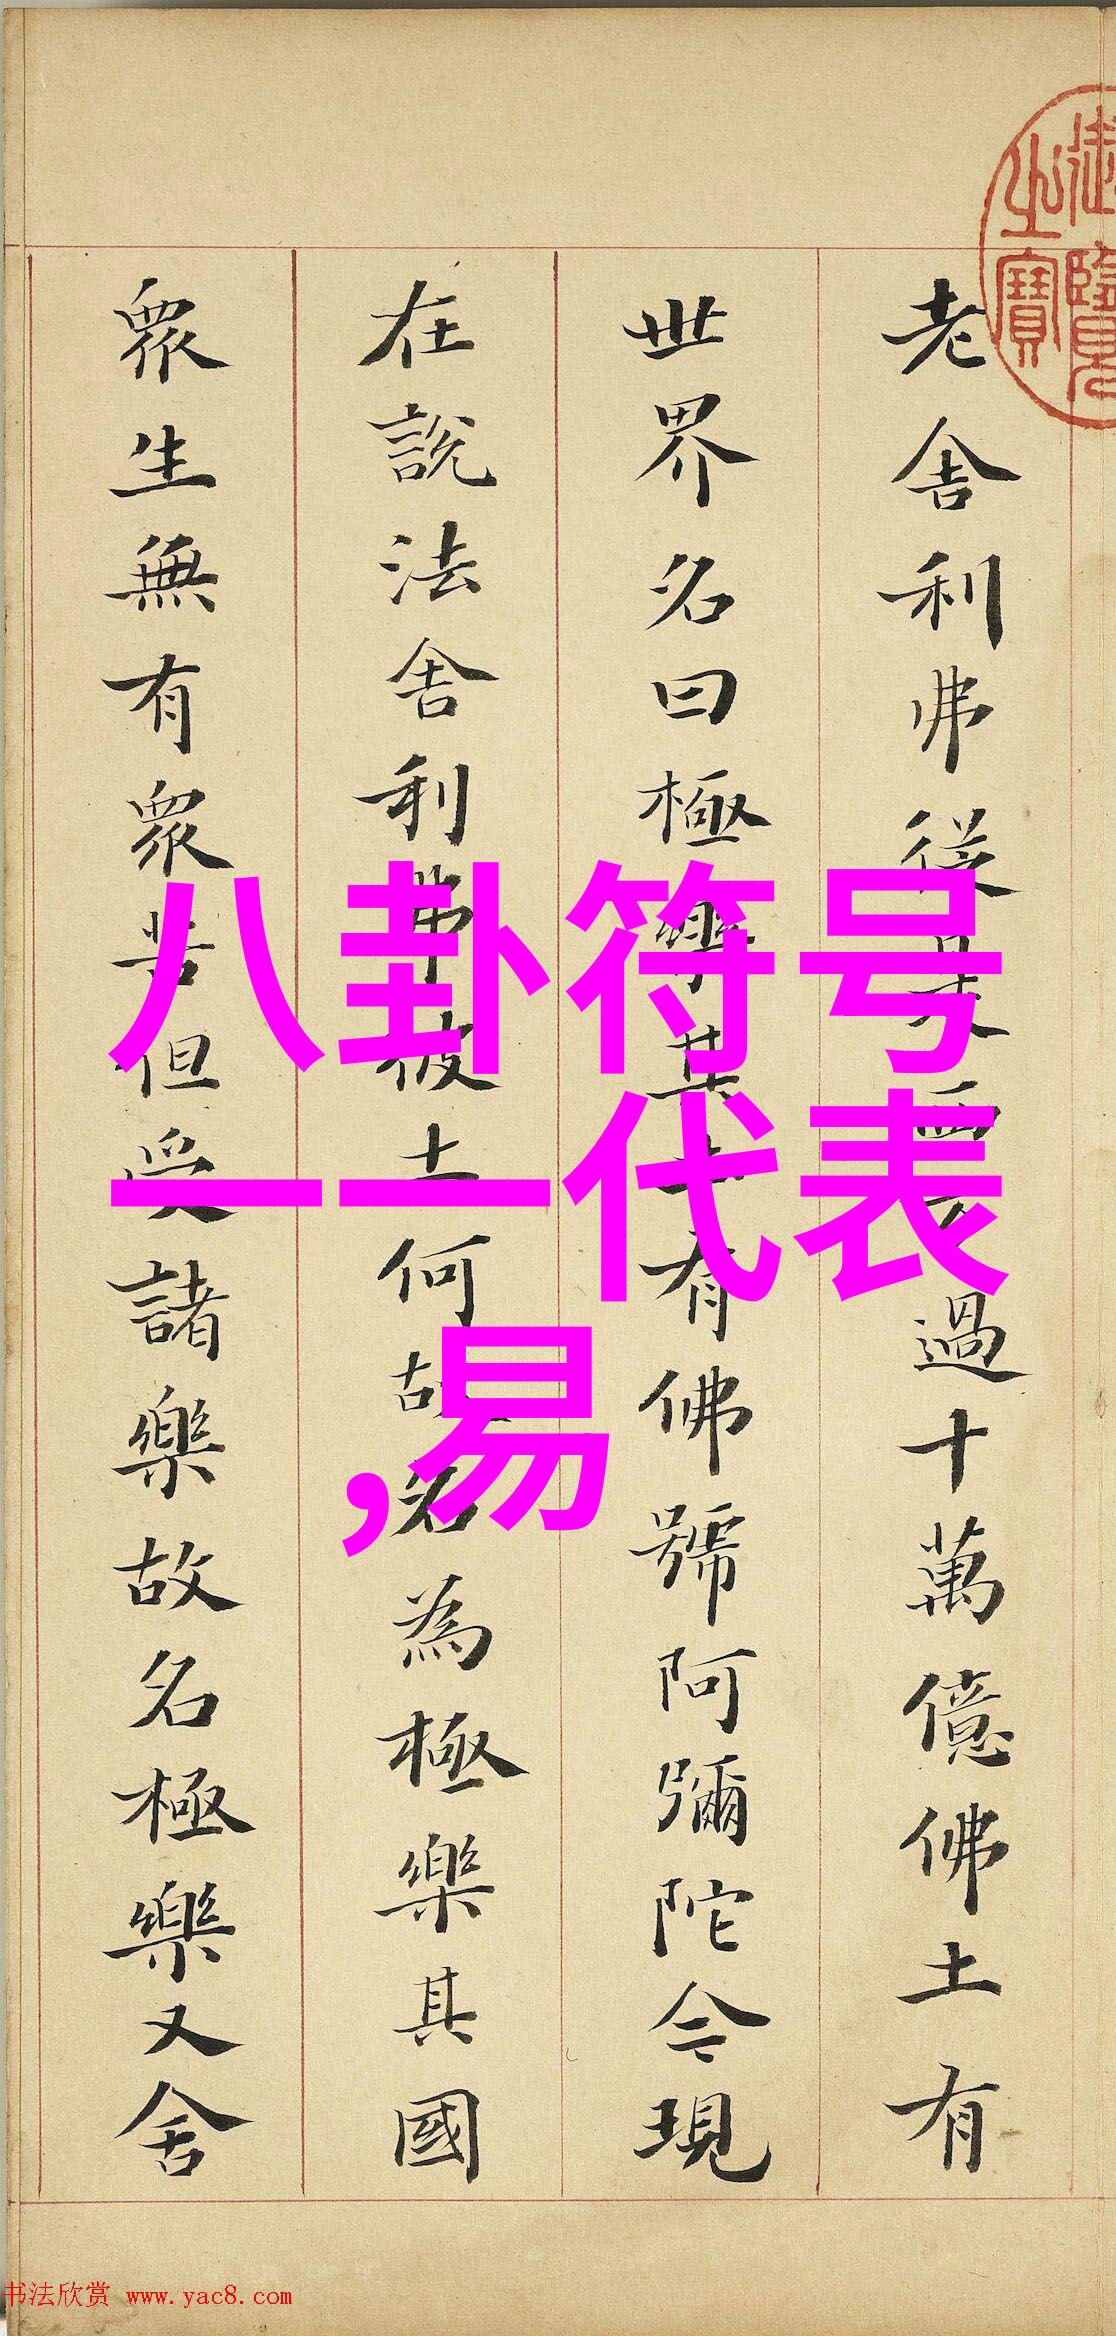 御覽之寶
老舍利弗從是西方過十萬億佛土有
世界名曰極樂其土有佛號阿彌陀今現
在說法舍利弗彼土何故名為極樂其國
眾生無有眾苦但受諸樂故名極樂又舍
八卦符号
一一代表
,易
书法欣赏 www.yac8.com